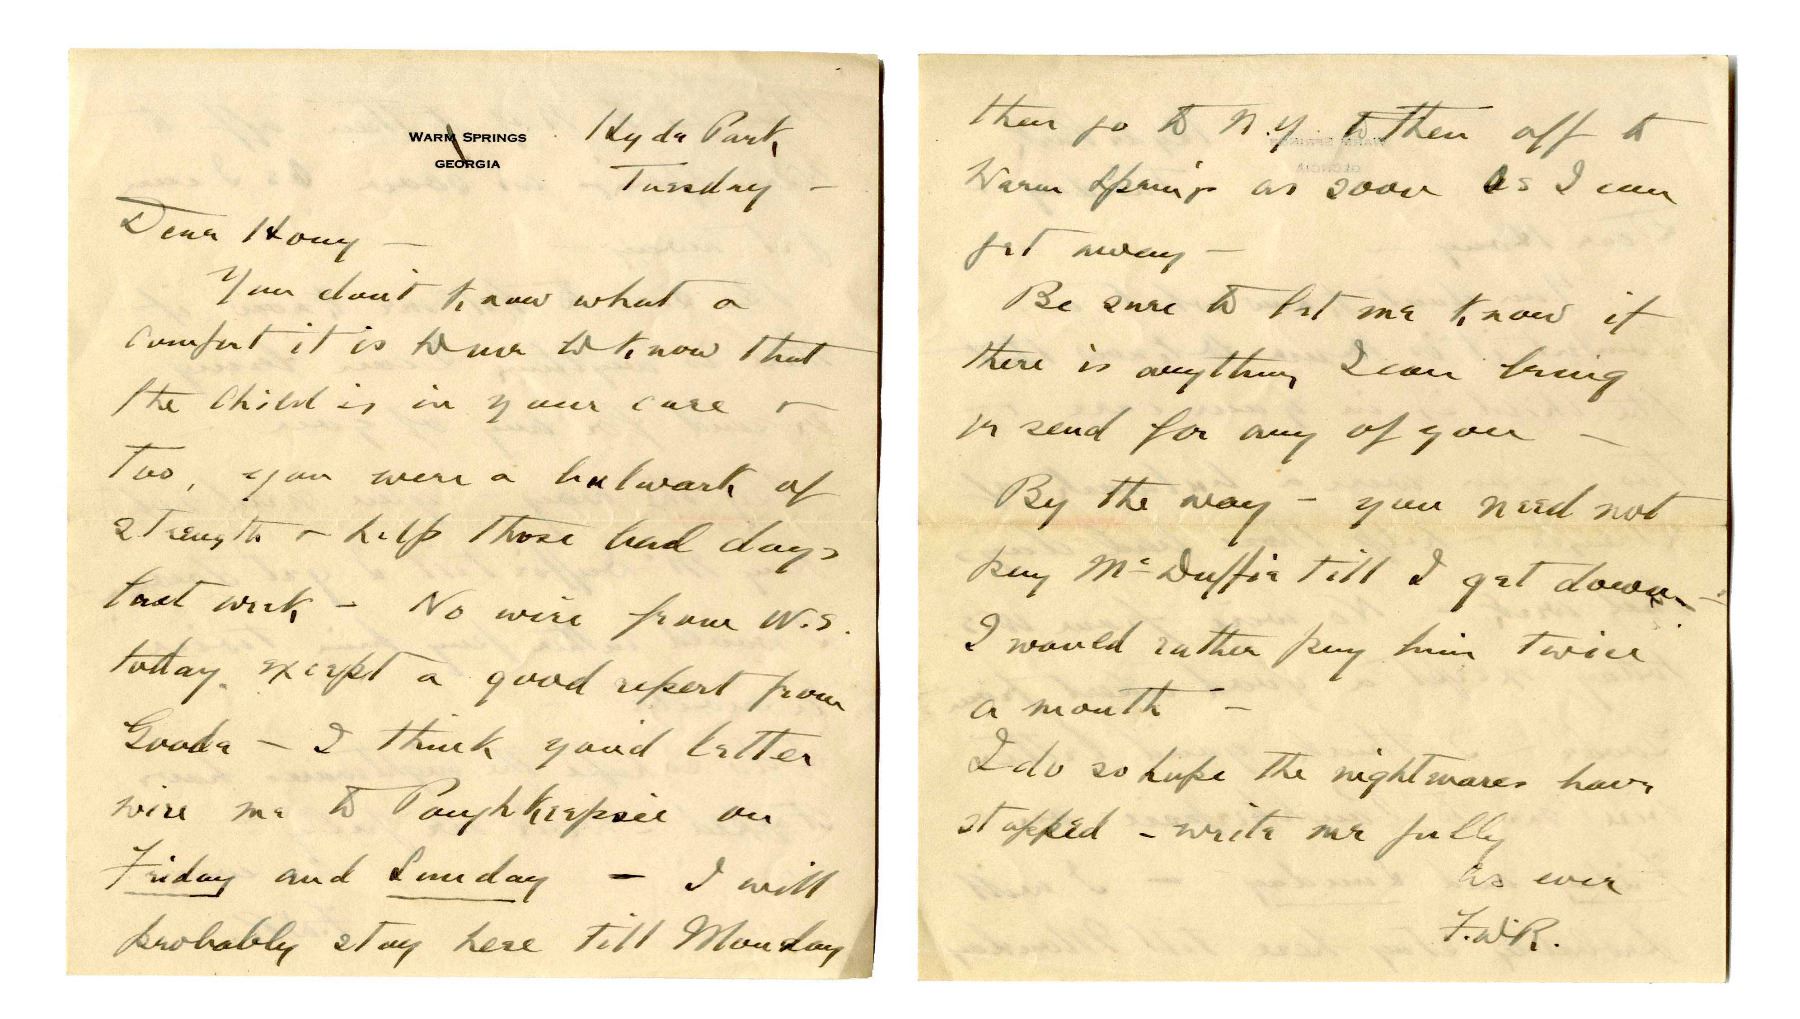 WARM SPRINGS
GEORGIA
Hyde Park
Tuesday –
Dear Hony –
You don't know what a
comfort it is to me to know that
the child is in your care &
too, you were a bulwark of
strength & help those bad days
last week – No wire from W.S.
today except a good report from
Goode – I think you'd better
wire me to Poughkeepsie on
Friday and Sunday – I will
probably stay here till Monday
then go to N.Y. to then off to
Warm Springs as soon as I can
get away –
Be sure to let me know if
there is anything I can bring
or send for any of you –
By the way – you need not
pay McDuffie till I get down –
I would rather pay him twice
a month –
I do so hope the nightmares have
stopped – write me fully
As ever
F.D.R.